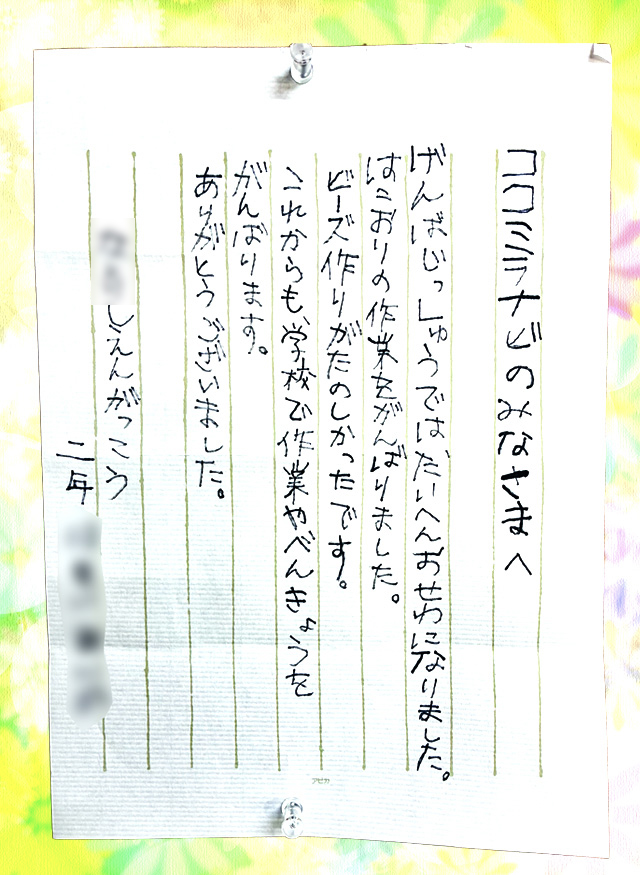 ココミラナビのみなさまへ
げんばじっしゅうではたいへんおせわになりました。
はこおりの作業をがんばりました。
ビーズ作りがたのしかったです。
これからも、学校で作業やべんきょうを
がんばります。
ありがとうございました。
しえんがっこう
二年
アピカ